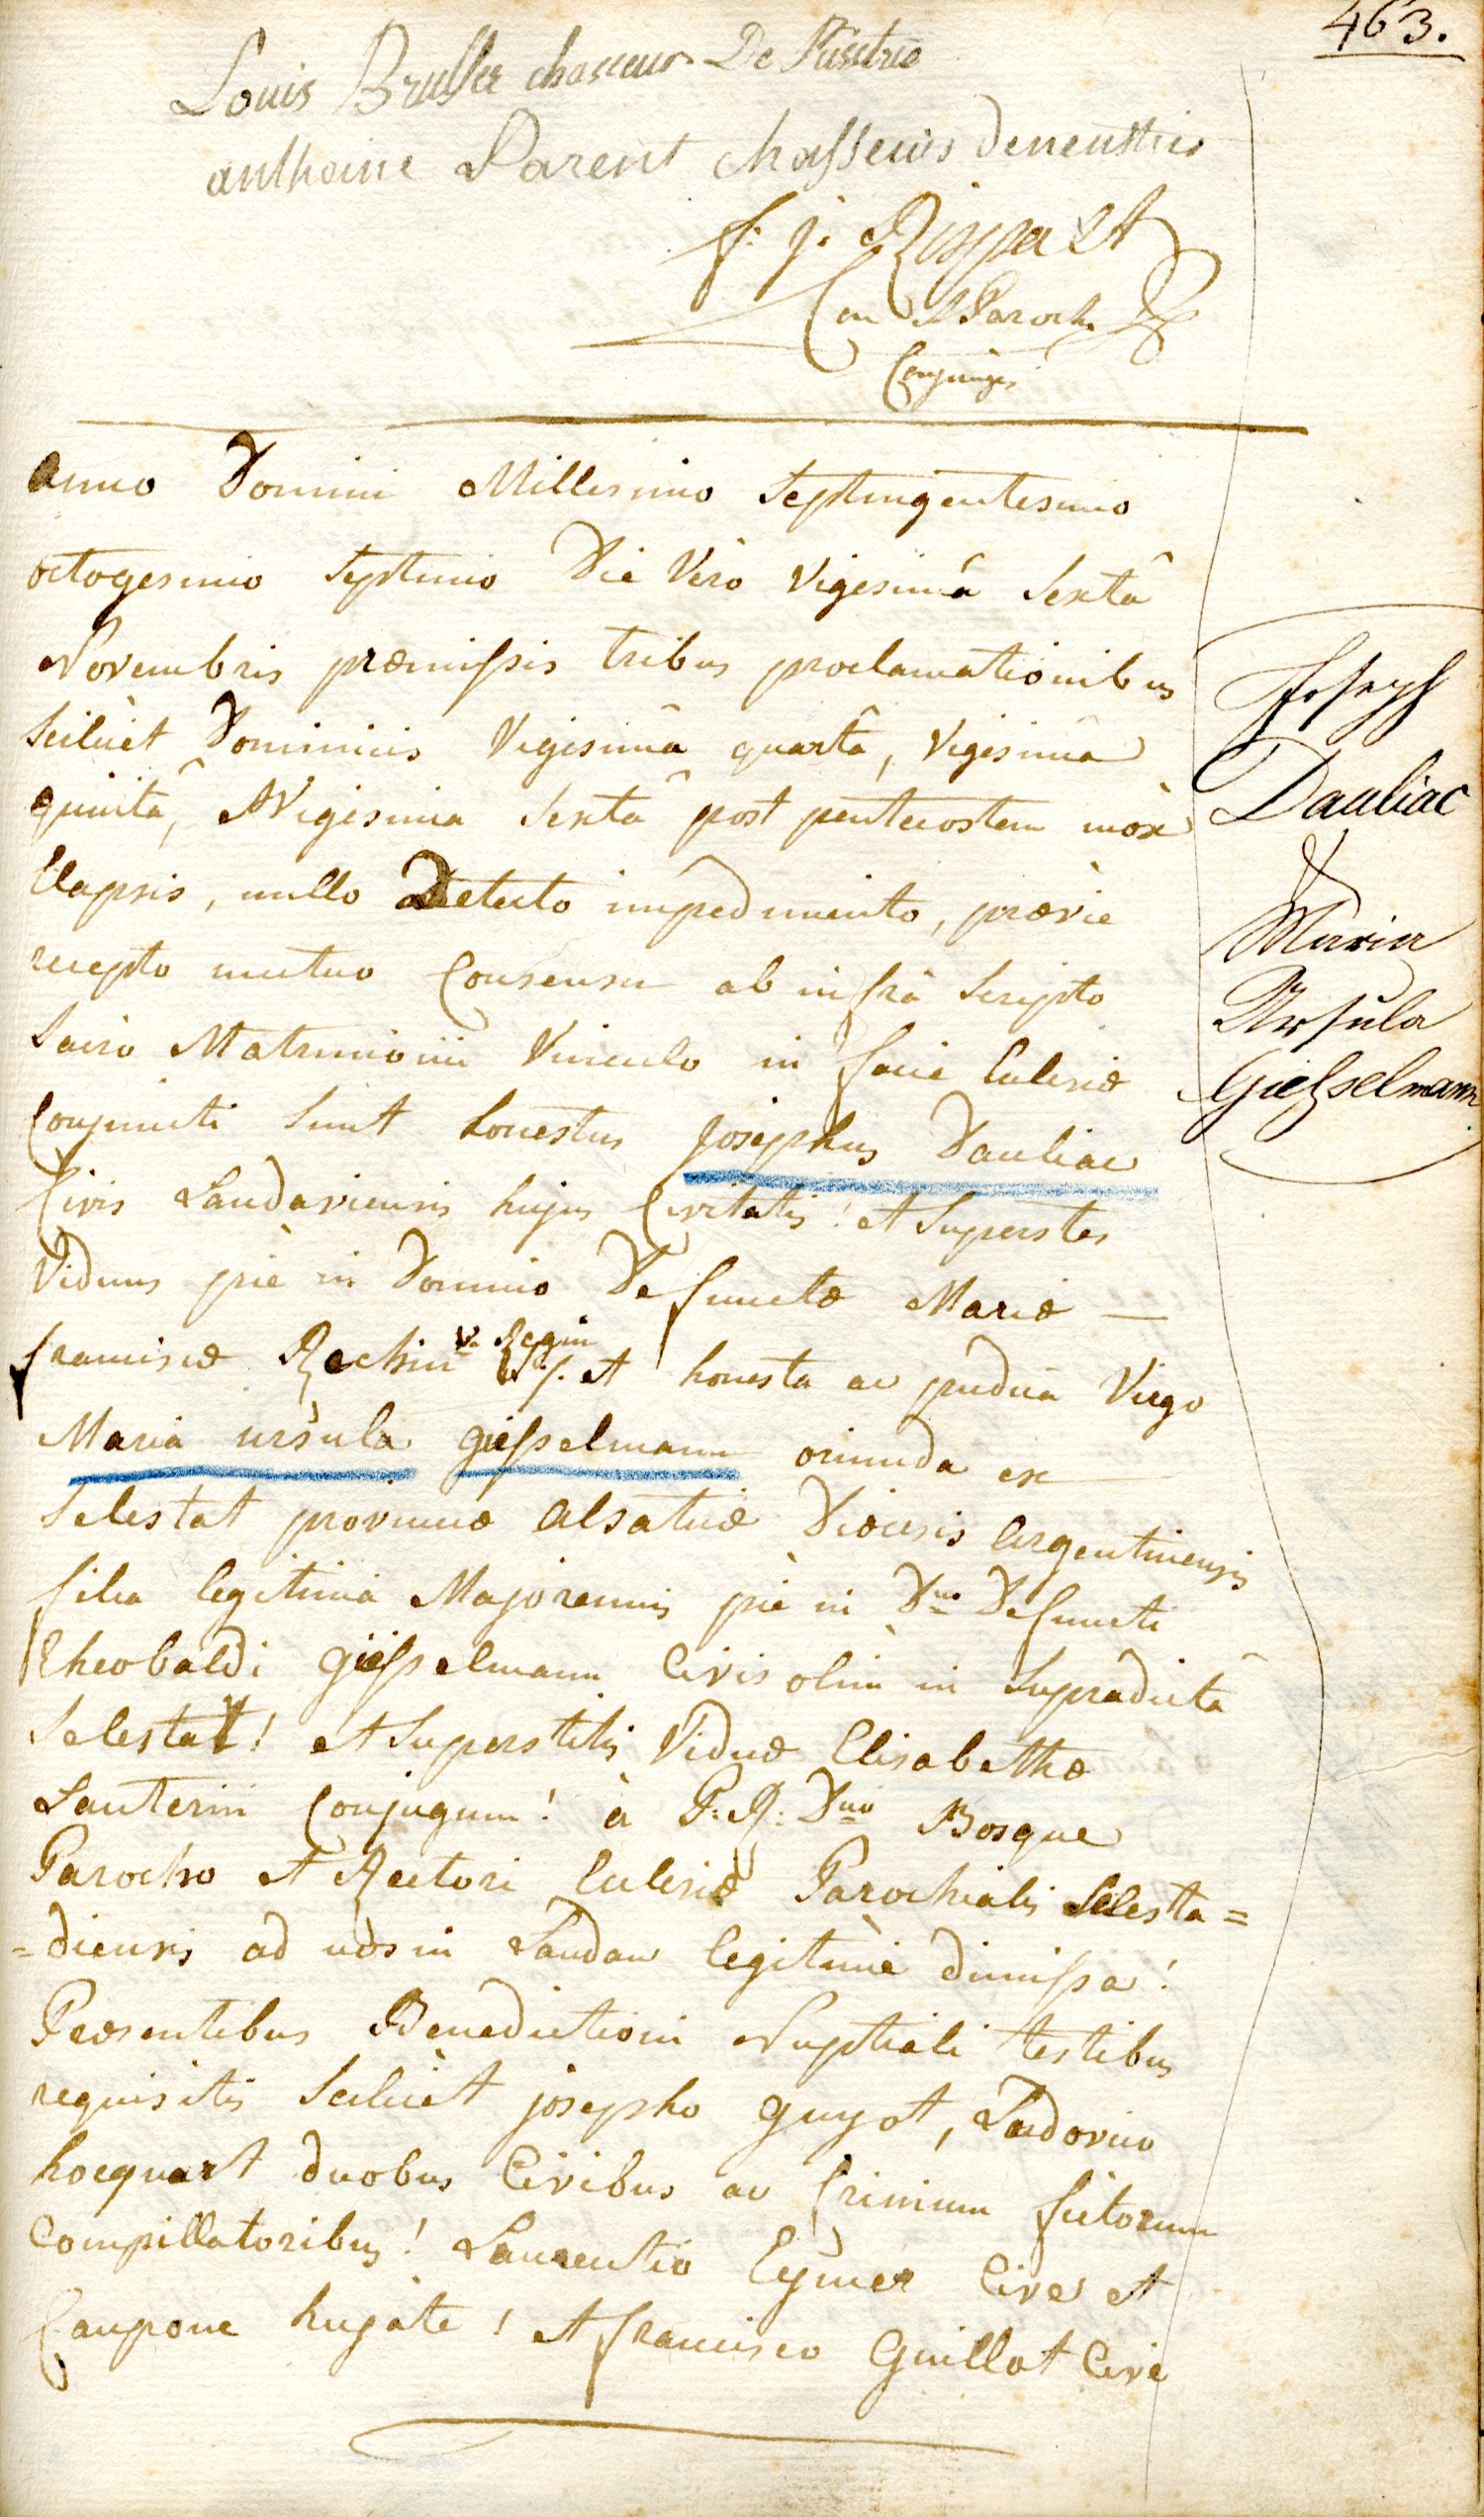 463.
Louis Brusser chasseur De
anthoine Parent chasseurs
f: j:
Con Paroch.
Conjunges
anno Domini Millesimo Septingentesimo
octogesimo Septimo Die Vero Vigesimâ Sextâ
Novembris præmissis tribus proclamationibus
Scilicet Dominicis Vigesimâ quartâ, Vigesimâ
quintâ, & Vigesima Sextâ post pentecostem mox
Elapsis, nullo Detecto impedimento, prævie
recepto mutuo Consensu ab infrà Scripto
Sacro Matrimonii Vinculo in facie Ecclesiæ
Conjuncti Sunt honestus josephus Dauliac
Civis Landaviensis hujus Civitatis! et Superstes
Viduus piè in Domino Defunctæ Mariæ —
franciscæ Rechin v. Regin et honesta ac pudica Virgo
Maria ursula giesselmann oriunda ex
Selestat provinciæ alsatiæ Diœcesis argentinensis
filia legitima Majorennis piè in Dno Defuncti
Theobaldi giesselmann Civis olim in Supradictâ
Selestat! et Superstitis Viduæ Elisabethæ
Lauterin Conjugum! à P: R: Dno Bosque
Parocho et Rectori Ecclesiæ Parochialis Selesta=
=diensis ad nos in Landau legitimè dimissa!
Præsentibus Benedictioni Nuptiali testibus
requisitis Scilicet josepho guyot, Ludovico
hocquart duobus Civibus ac Crinium fictorum
Compillatoribus! Laurentio Eymer Cive et
Caupone hujate! et francisco Guillot Cive
Joseph
Dauliac
&
Maria
Ursula
Giesselmann